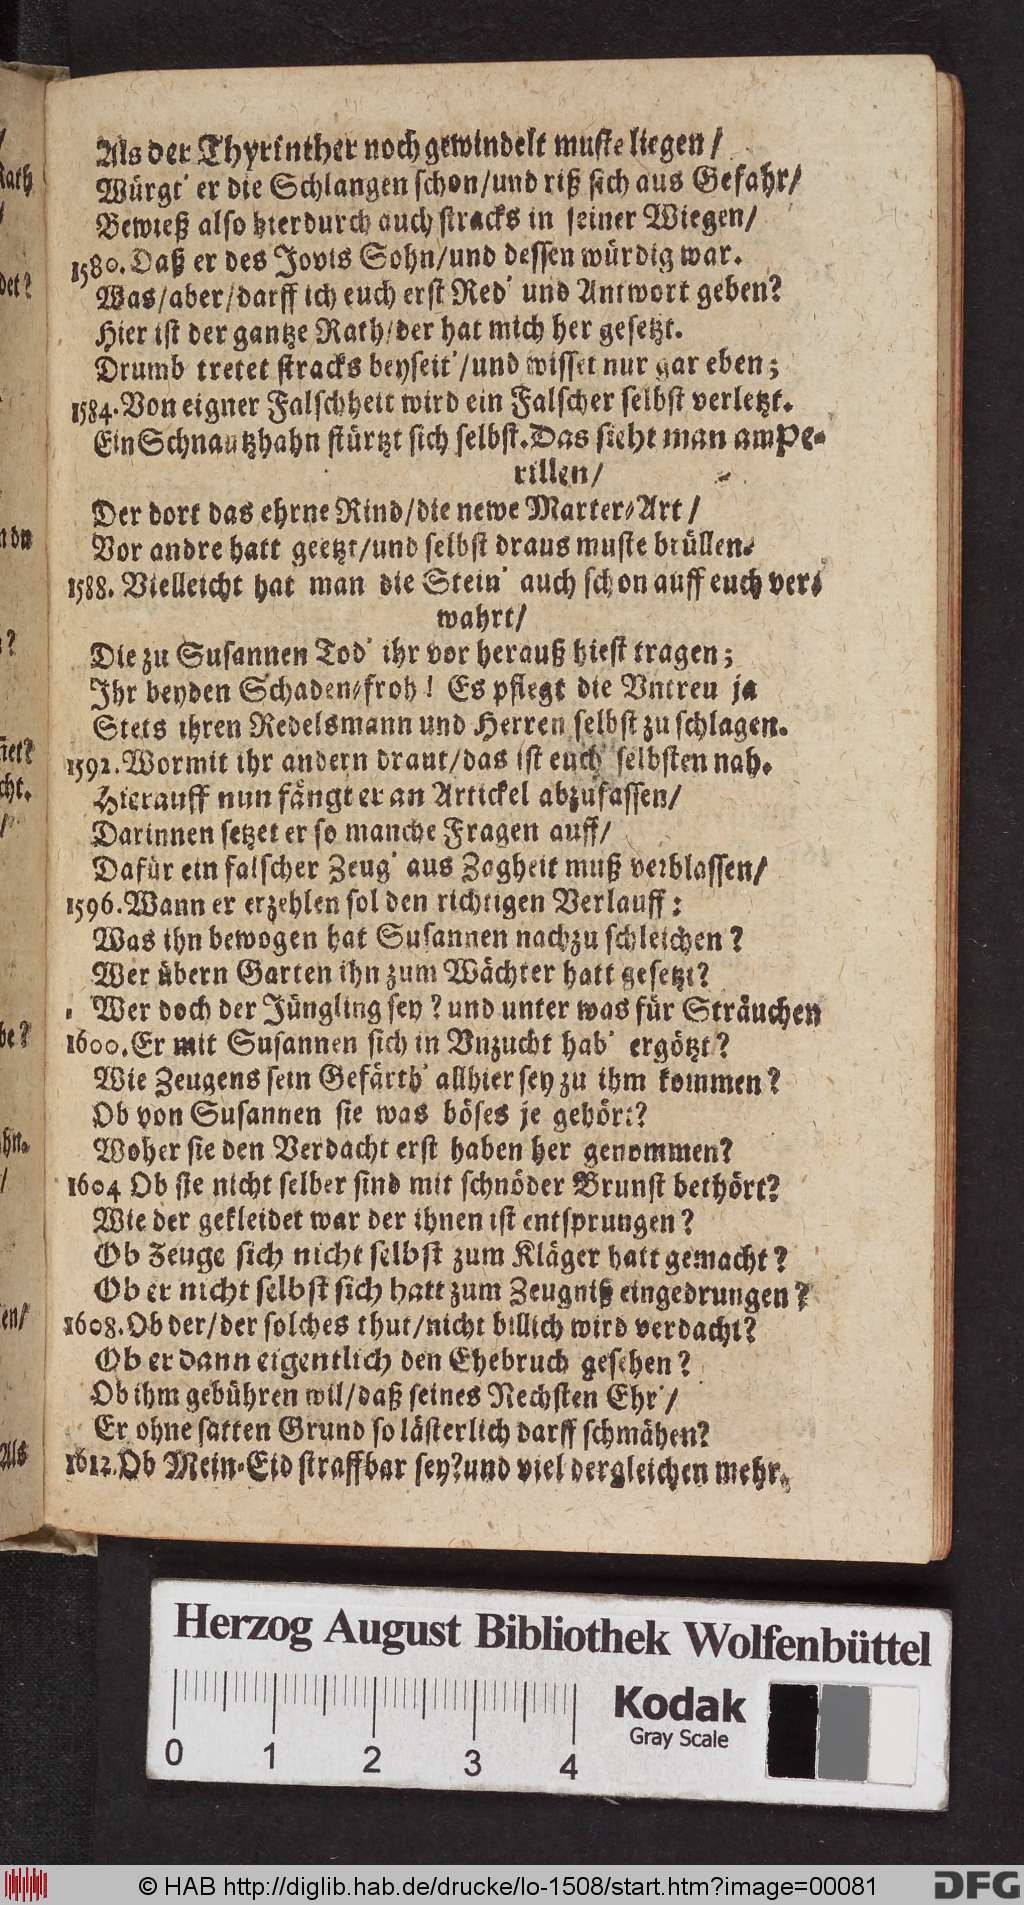 Als der Thyrinther noch gewindelt muste liegen/
Würgt' er die Schlangen schon/und riß sich aus Gefahr/
Bewieß also hierdurch auch stracks in seiner Wiegen/
1580. Daß er des Jovis Sohn/und dessen würdig war.
Was/aber/darff ich euch erst Red' und Antwort geben?
Hier ist der gantze Rath/der hat mich her gesetzt.
Drumb tretet stracks beyseit'/und wisset nur gar eben;
1584. Von eigner Falschheit wird ein Falscher selbst verletzt.
Ein Schnautzhahn stürtzt sich selbst. Das sieht man am Pe-
rillen/
Der dort das ehrne Rind/die newe Marter-Art/
Vor andre hatt geetzt/und selbst draus muste brüllen.
1588. Vielleicht hat man die Stein' auch schon auff euch ver-
wahrt/
Die zu Susannen Tod' ihr vor herauß hiest tragen;
Ihr beyden Schaden-froh! Es pflegt die Vntreu ja
Stets ihren Redelsmann und Herren selbst zu schlagen.
1592. Wormit ihr andern draut/das ist euch selbsten nah.
Hierauff nun fängt er an Artickel abzufassen/
Darinnen setzet er so manche Fragen auff/
Dafür ein falscher Zeug' aus Zagheit muß verblassen/
1596. Wann er erzehlen sol den richtigen Verlauff:
Was ihn bewogen hat Susannen nachzuschleichen?
Wer übern Garten ihn zum Wächter hatt gesetzt?
Wer doch der Jüngling sey? und unter was für Sträuchen
1600. Er mit Susannen sich in Vnzucht hab' ergötzt?
Wie Zeugens sein Gefärth' allhier sey zu ihm kommen?
Ob von Susannen sie was böses je gehört?
Woher sie den Verdacht erst haben her genommen?
1604 Ob sie nicht selber sind mit schnöder Brunst bethört?
Wie der gekleidet war der ihnen ist entsprungen?
Ob Zeuge sich nicht selbst zum Kläger hatt gemacht?
Ob er nicht selbst sich hatt zum Zeugniß eingedrungen?
1608. Ob der/der solches thut/nicht billich wird verdacht?
Ob er dann eigentlich den Ehebruch gesehen?
Ob ihm gebühren wil/daß seines Nechsten Ehr'/
Er ohne satten Grund so lästerlich darff schmähen?
1612. Ob Mein-Eid straffbar sey? und viel dergleichen mehr.
Herzog August Bibliothek Wolfenbüttel
Kodak
Gray Scale
0 1 2 3 4
© HAB http://diglib.hab.de/drucke/lo-1508/start.htm?image=00081
DFG